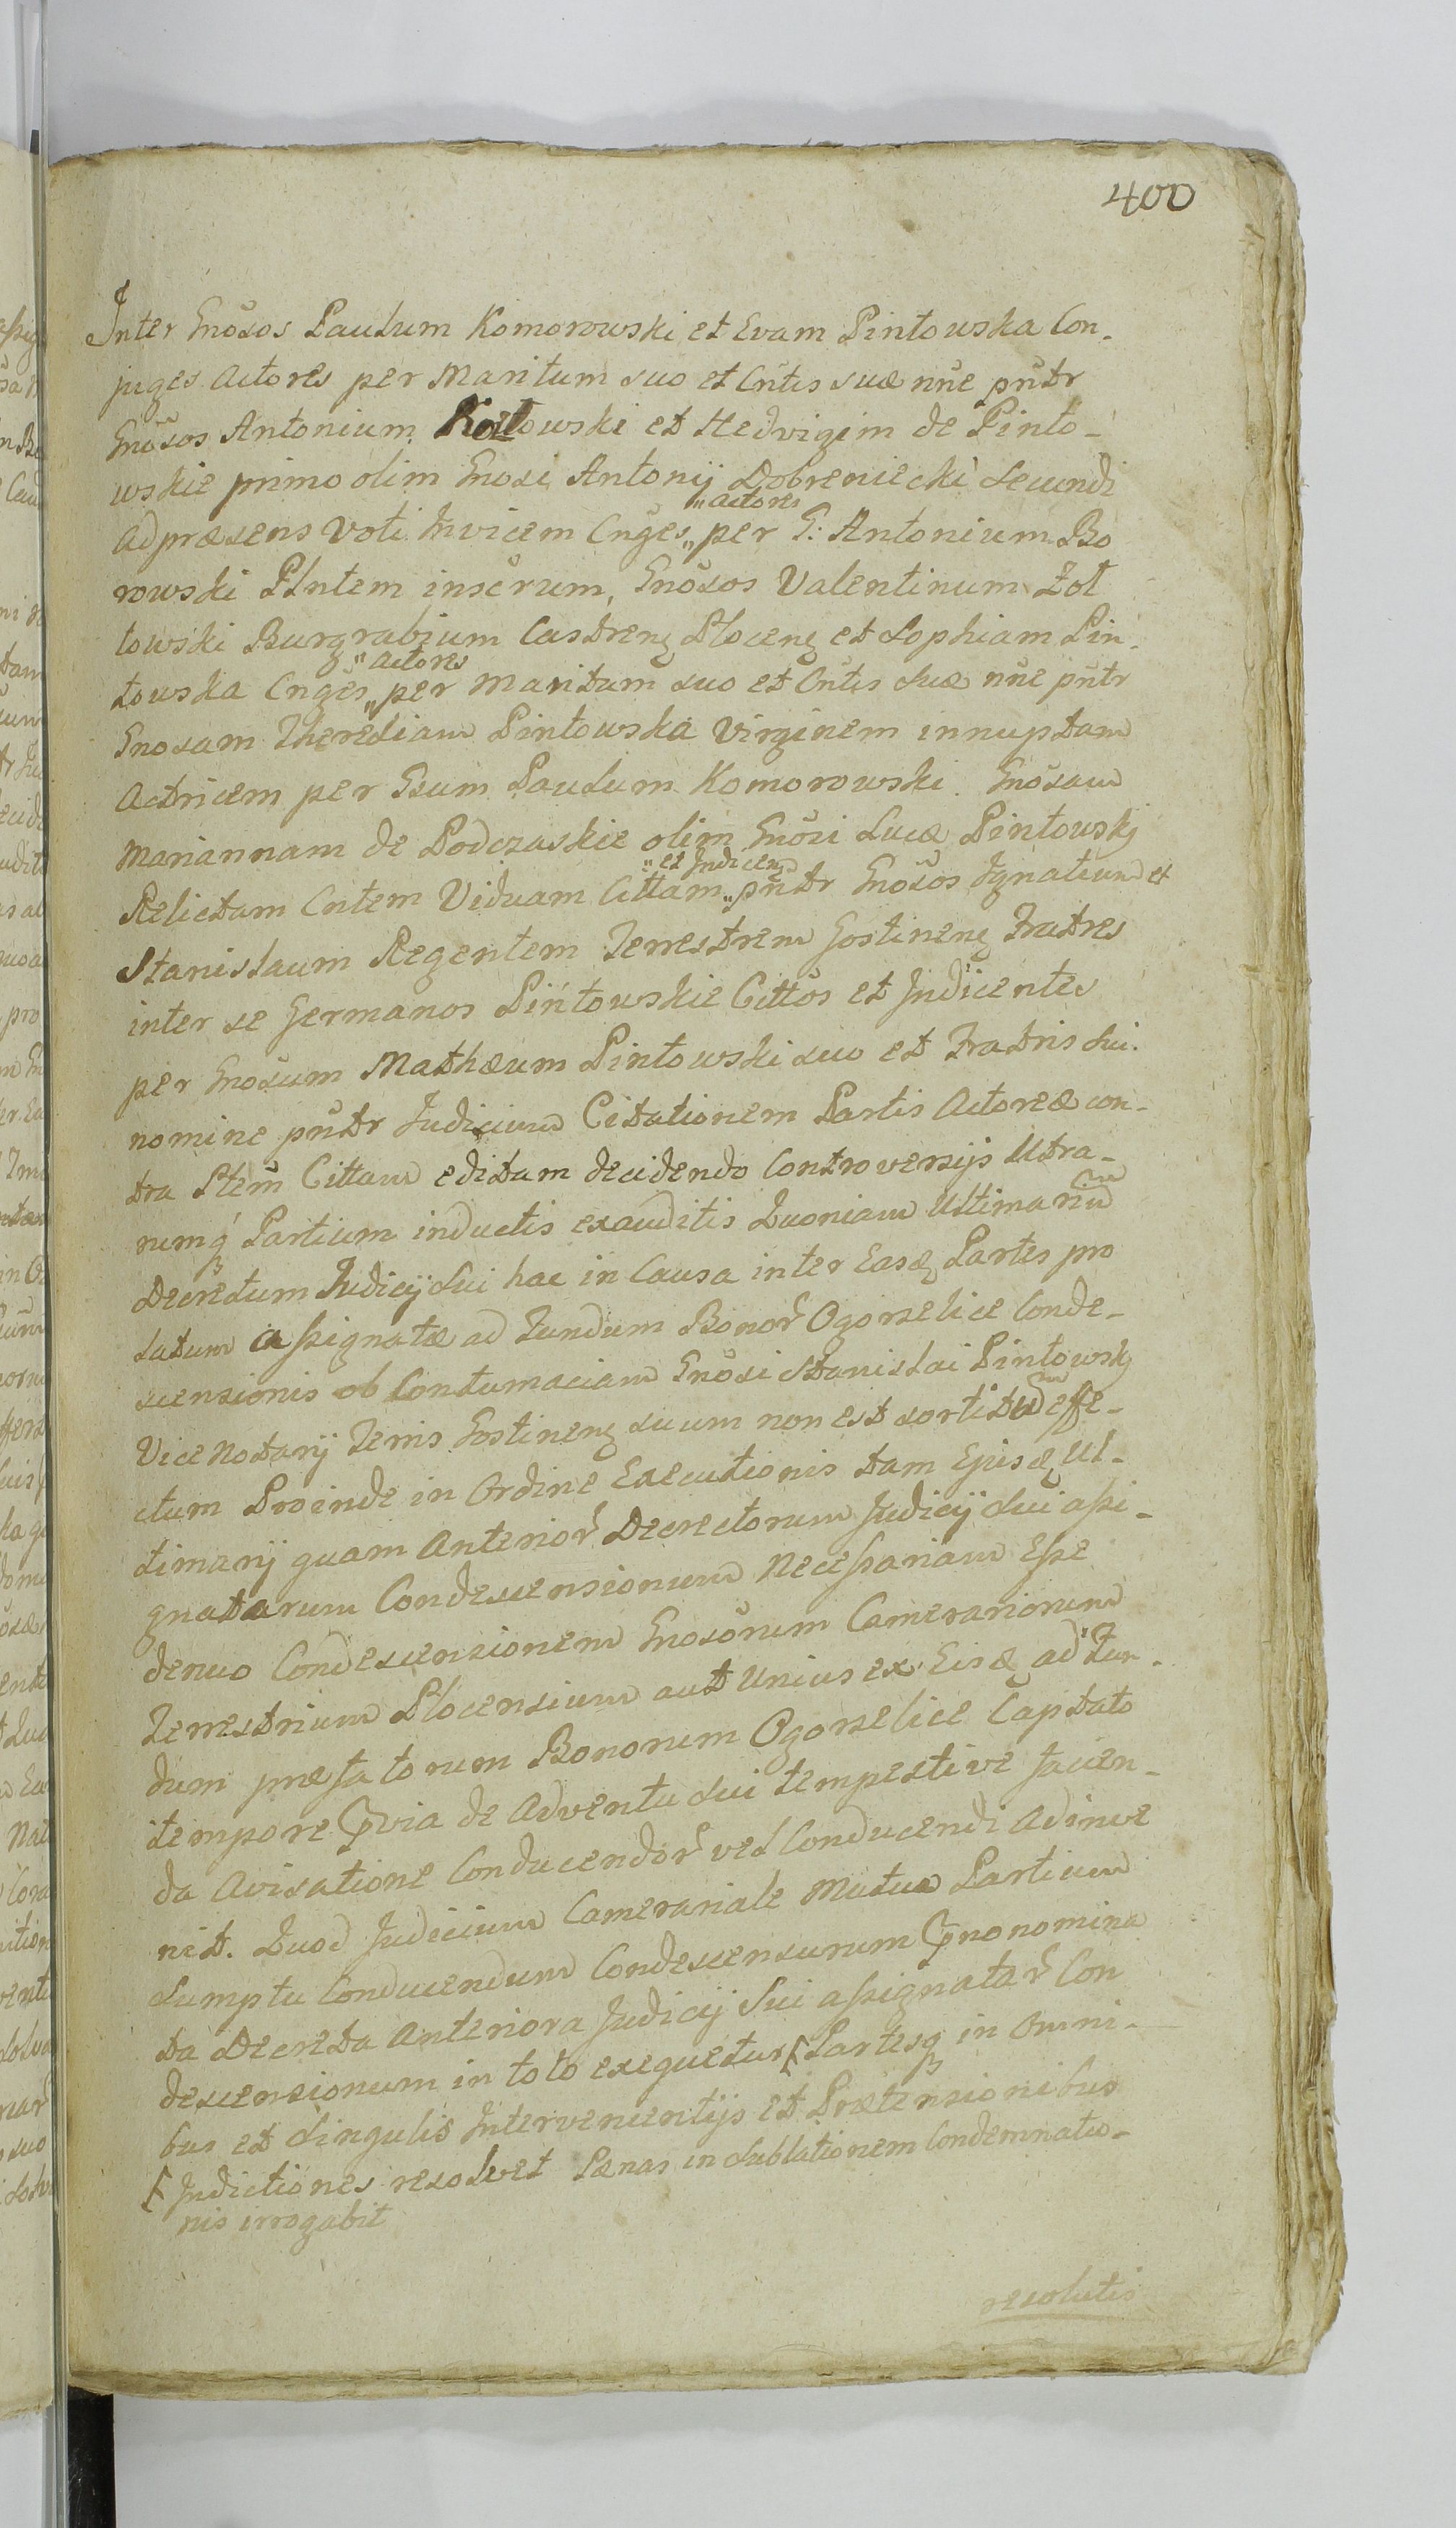 400
Inter Gnosos Paulum Komorowski et Evam Pintowska Con-
juges Actores per Maritum suo et Cntis suæ nne pntr
Gnosos Antonium Kotłowski et Hedvigim de Pinto-
wskie primo olim Gnosi Antonij Dobreniecki secundi
ad præsens voti invicem Cnges „actores„ per G: Antonium Bo
rowski Plntem inscrum, Gnosos Valentinum Żół
towski Burgrabium Castrenȝ Plocenȝ et Sophiam Pin-
towska Cnges „actores„ per Maritum suo et Cntis suæ nne pntr
Gnosam Theresiam Pintowska Virginem innuptam
Actricem per Gsum Paulum Komorowski. Gnosam
Mariannam de Podczaskie olim Gnosi Lucæ Pintowskj
Relictam Cntem Viduam Cittam „et Indicen„ pntr Gnosos Ignatium et
Stanislaum Regentem Terrestrem Gostinenȝ Fratres
inter se Germanos Pintowskie Cittos et Indicentes
per Gnosum Mathæum Pintowski suo et Fratris sui
nomine pntr Judicium Citationem Partis Actoreæ con-
tra Ptem Cittam editam decidendo Controversijs Utra-
rumq Partium inductis exauditis Quoniam Ultimarium
Decretum Judicij sui hac in Causa inter Easȝ Partes pro
latum assignatæ ad Fundum Bonor Ogorzelice Conde-
scensionis ob Contumaciam Gnosi Stanislai Pintowskj
Vice Notarij Terris Gostinenȝ suum non est sortitum effe-
ctum Proinde in Ordine Executionis tam Ejusȝ Ul-
timarij quam Anterior Decretorum Judicij sui assi-
gnatarum Condescensionum Necessariam Esse
denuo Condescensionem Gnosorum Camerariorum
Terrestrium Plocensium aut Unius ex Eisȝ ad Fun-
dum præfatorum Bonorum Ogorzelice Captato
tempore Prvia de Adventu sui tempestive facien-
da Avisatione Conducendor vel Conducendi Adinve
nit. Quod Judicium Camerariale Mutuo Partium
Sumptu Conducendum Condescensurum Prnonomina
ta Decreta Anteriora Judicij Sui assignatar Con
descensionum in toto exequetur [ Partesq in Omni-
bus et Singulis Intervenientijs et Prætensionibus
[ Indictiones resolvet Pænas in sublationem Condemnatio-
nis irrogabit
resolutis